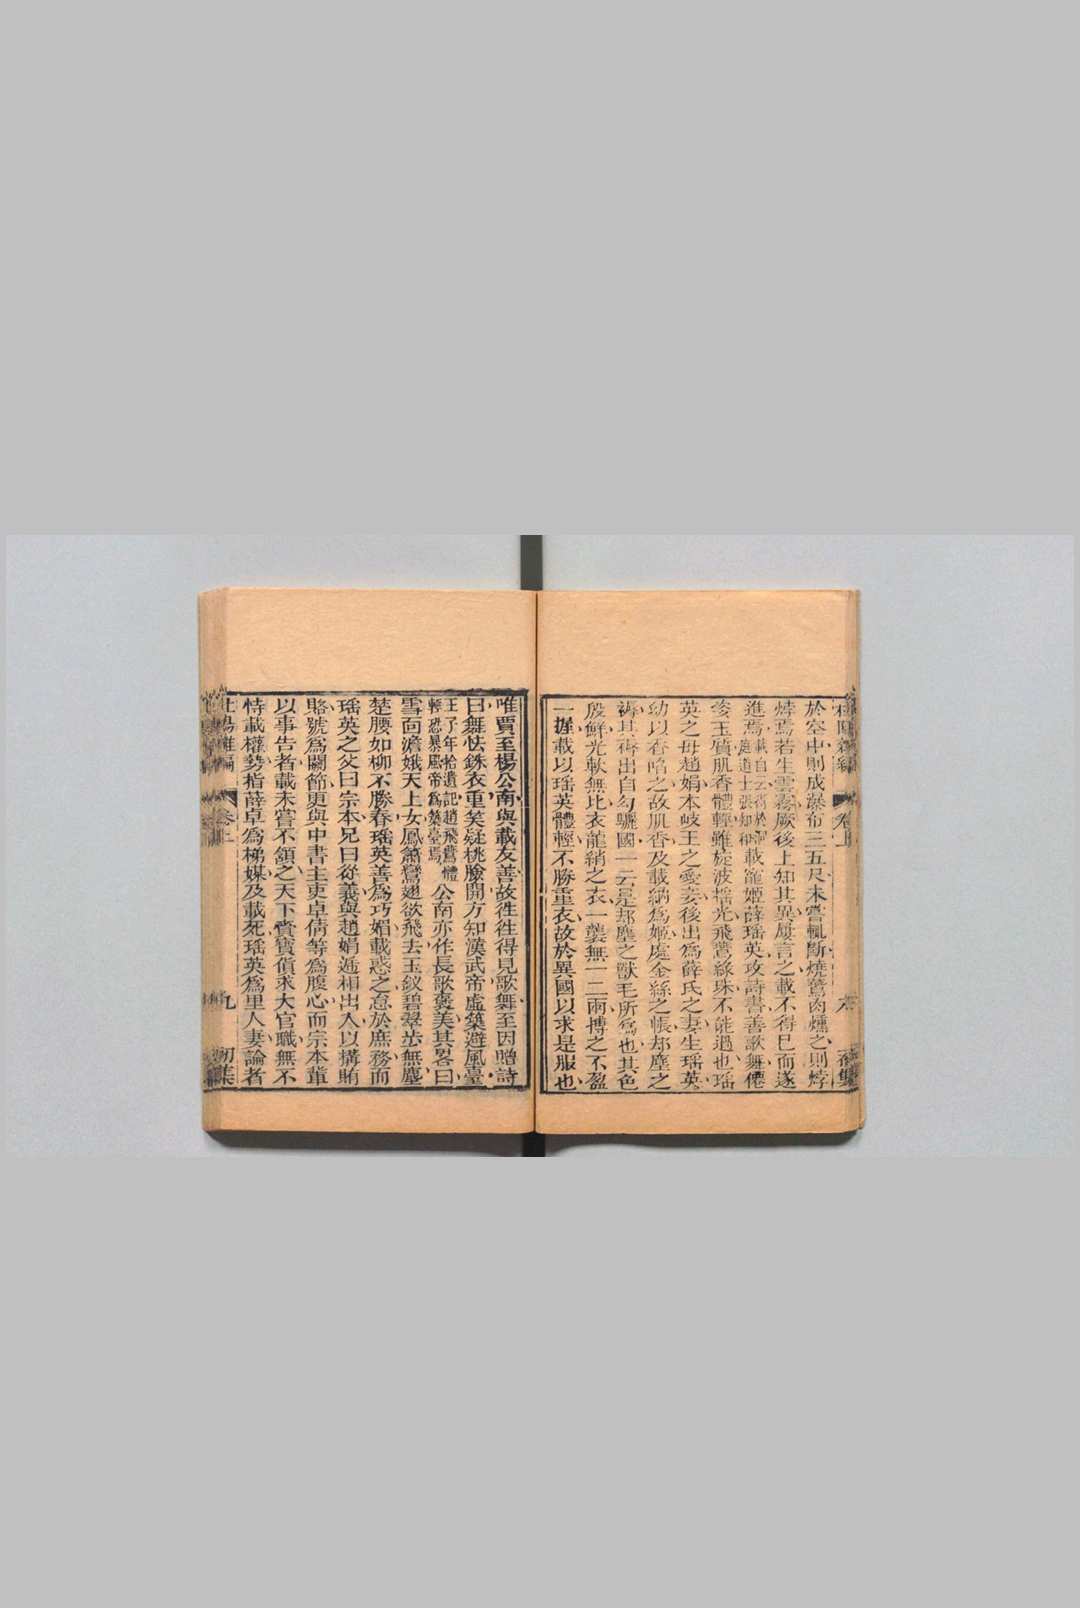 於空中則成瀑布三五尺未嘗輒斷燒鷰肉燻之則㶿
㶿焉若生雲霧厥後上知其異屢言之載不得巳而遂
進焉載自云得於洞庭道士張知和載寵姬薛瑶英攻詩書善歌舞僊
姿玉質肌香體輕雖旋波摇光飛鷰緑珠不能過也瑶
英之母趙娟本岐王之愛妾後出爲薛氏之妻生瑶英
幼以香啗之故肌香及載納爲姬處金絲之帳却塵之
褥其褥出自勾驪國一云是却塵之獸毛所爲也其色
殷鮮光軟無比衣龍綃之衣一襲無一二兩摶之不盈
一握載以瑶英體輕不勝重衣故於異國以求是服也
唯賈至楊公南與載友善故徃徃得見歌舞至因贈詩
曰舞怯銖衣重笑疑桃臉開方知漢武帝虛築避風臺
王子年拾遺記趙飛鷰體輕恐暴風帝爲築臺焉公南亦作長歌褒美其畧曰
雪面澹娥天上女鳳簫鸞翅欲飛去玉釵碧翠步無塵
楚腰如柳不勝春瑶英善爲巧媚載惑之怠於庶務而
瑶英之父曰宗本兄曰從義與趙娟遞相出入以搆賄
賂號爲關節更與中書主吏卓倩等爲腹心而宗本輩
以事告者載未嘗不頷之天下賫寳貨求大官職無不
恃載權勢指薛卓爲梯媒及載死瑶英爲里人妻論者
卷上
九
初集